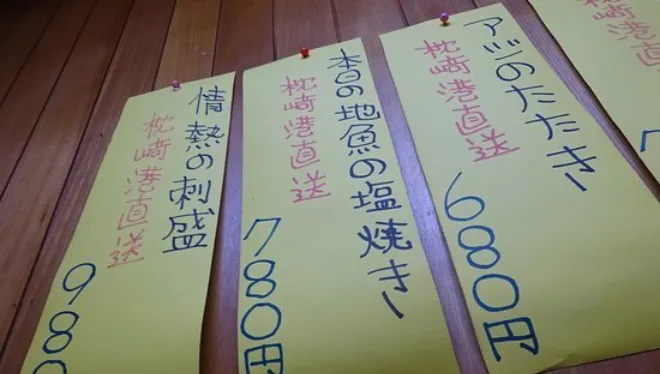 アジのたたき
枕崎港直送
680円
本日の地魚の塩焼き
枕崎港直送
780円
情熱の刺盛
枕崎港直送
980
枕崎港直
7